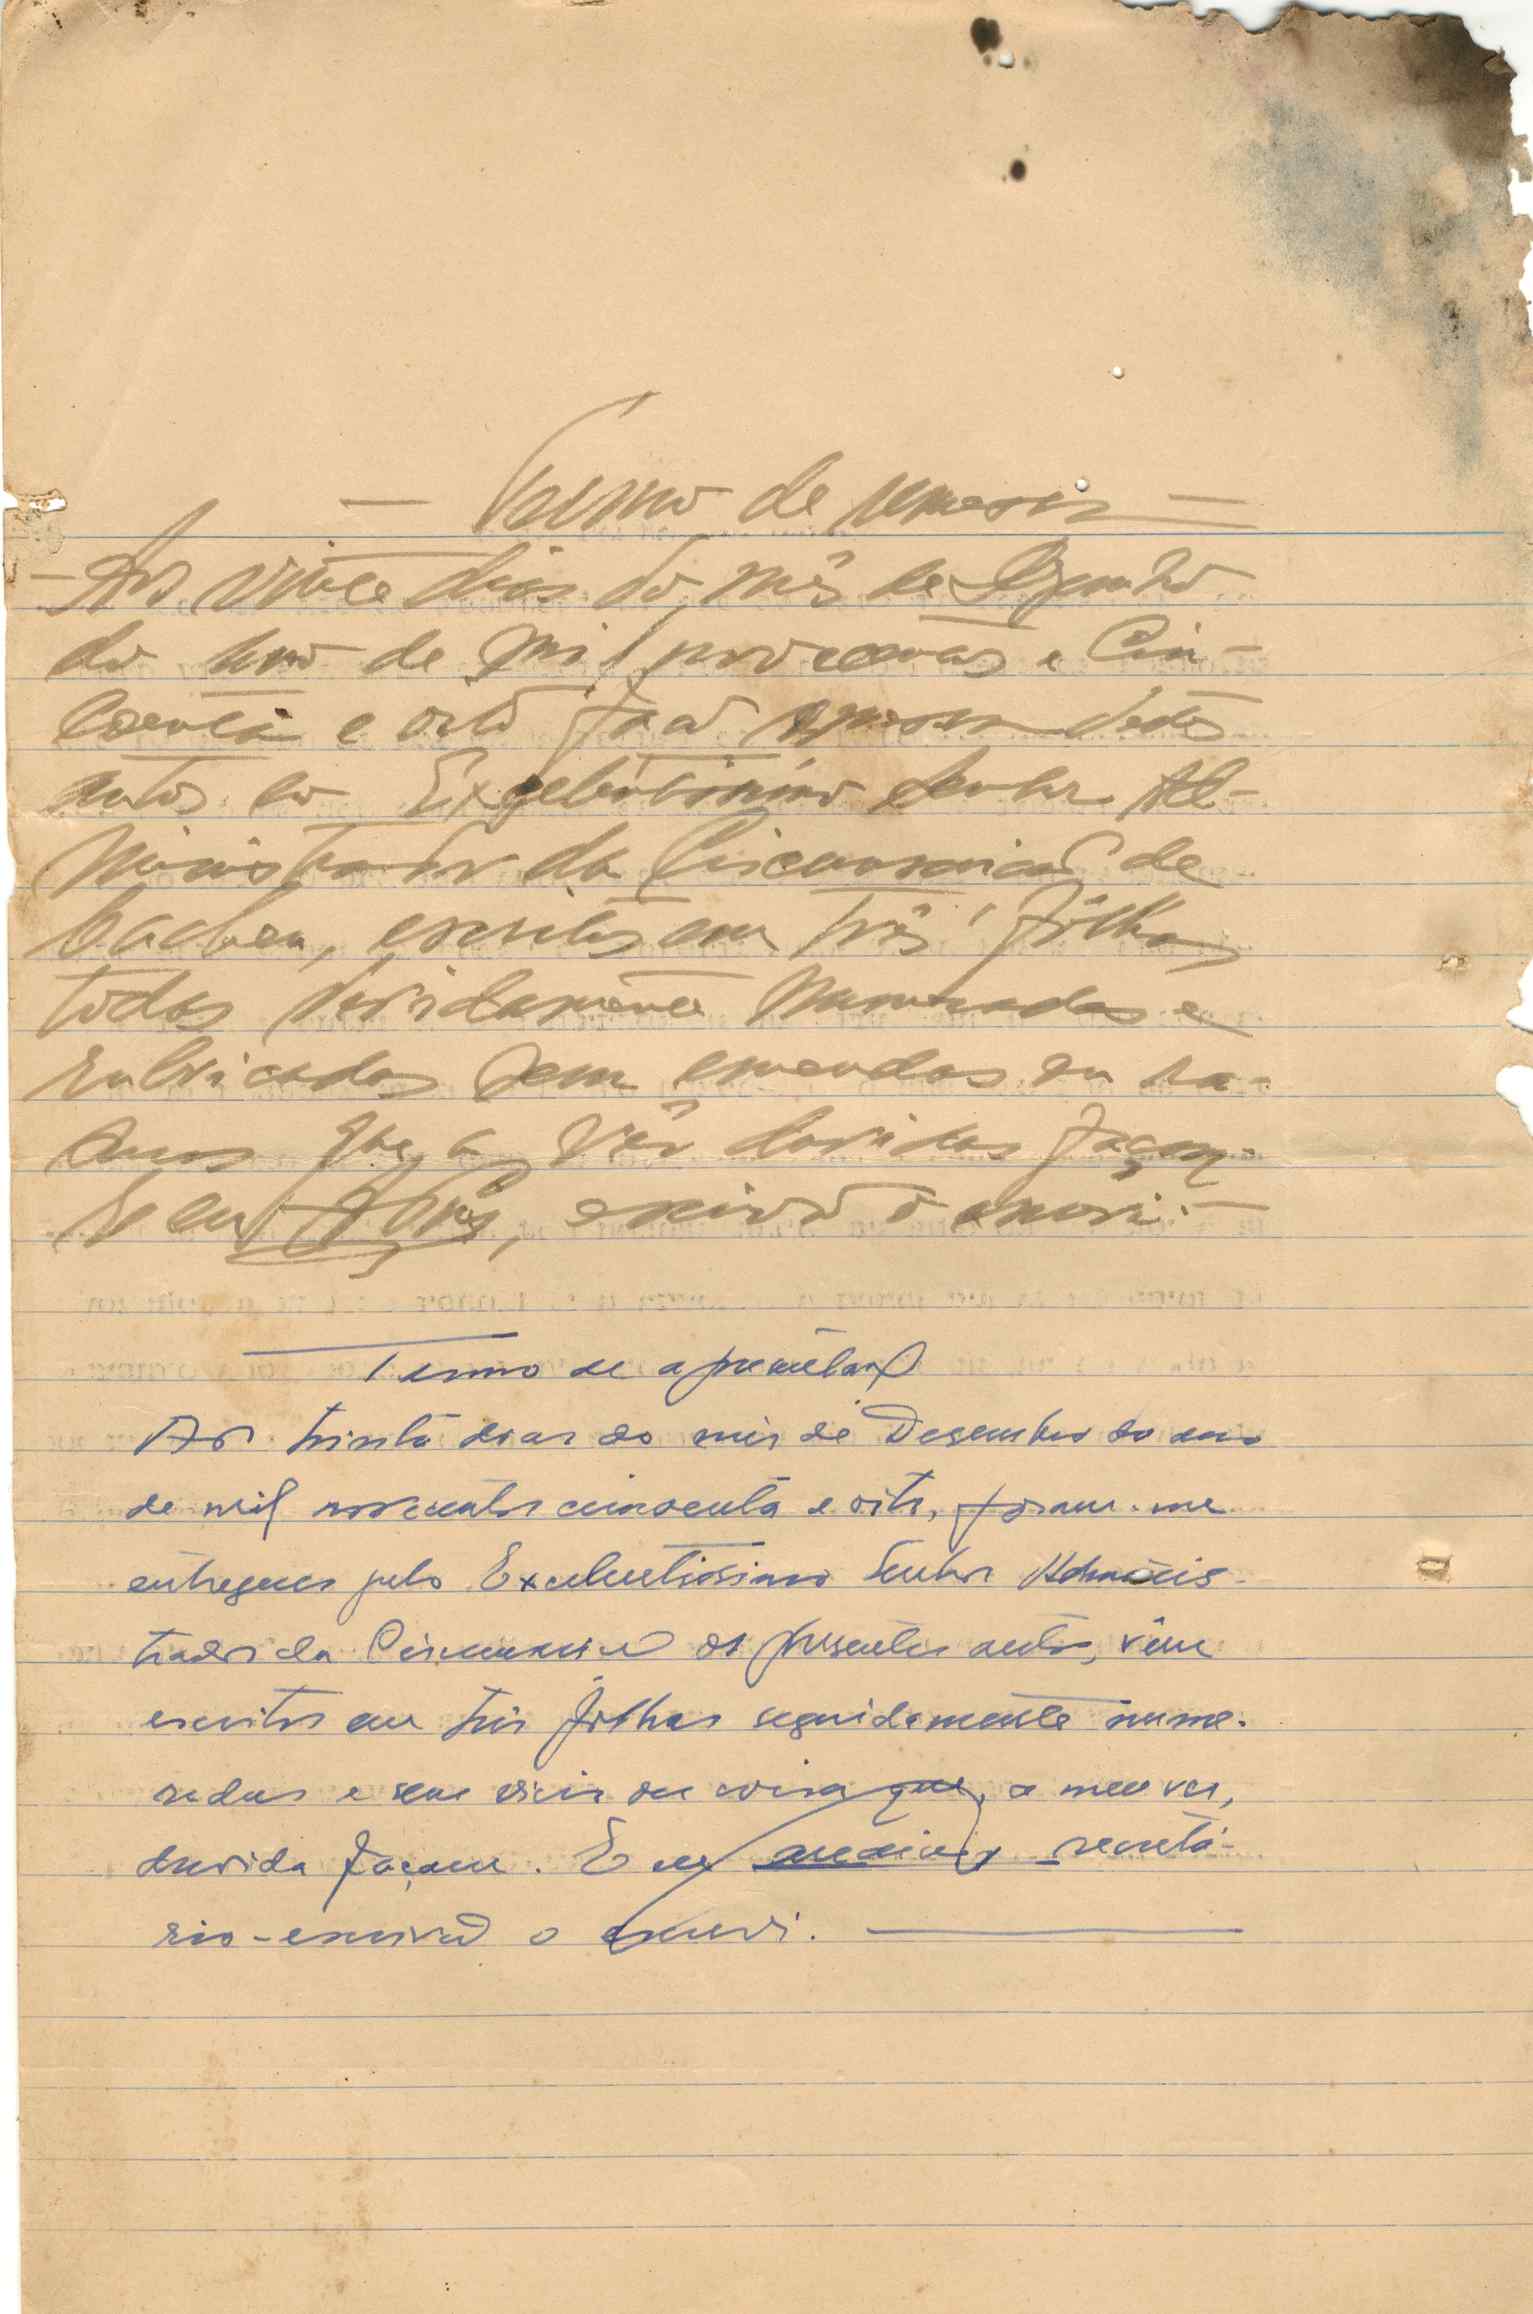 — Termo de remessa —
— Aos vinte dias do mês de Agosto
do ano de mil novecentos e Cin-
coenta e oito faço remessa dêstes
autos ao Excelentíssimo Senhor Ad-
ministrador da Circunscrição de
Cacheu, escritos em três fôlhas
todas devidamente numeradas e
rubricadas sem emendas ou ra-
suras que a vêr duvidas façam.
E eu, escrivão o escrevi. —
Termo de apresentação
Aos trinta dias do mês de Desembro do ano
de mil novecentos cincoenta e oito, foram-me
entregues pelo Excelentissimo Senhor Adminis-
trador da Circunscrição os presentes autos, vêm
escritos em três fôlhas seguidamente nume-
radas e sem vicio ou coisa que, a meu ver,
duvida façam. E eu secretá-
rio-escrivão o escrevi. —